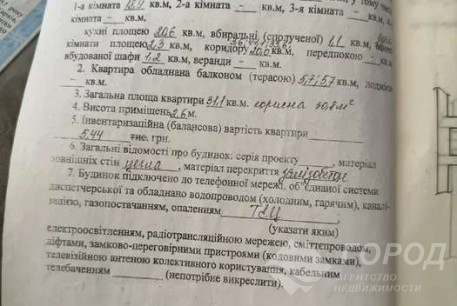 1-а кімната 16,9 кв.м, 2-а кімната – кв.м, 3-я кімната – кв.м,
кімната – кв.м,
кухні площею 20,6 кв.м, вбиральні (сполученої) 1,1 кв.м,
кімнати площею 2,3 кв.м, коридору кв.м, передпокою – кв.м,
вбудованої шафи 1,2 кв.м, веранди – кв.м.
2. Квартира обладнана балконом (терасою) 5,7; 5,7 кв.м,
– кв.м.
3. Загальна площа квартири 91,1 кв.м.
4. Висота приміщень 2,6 м.
5. Інвентаризаційна (балансова) вартість квартири
5,44 тис. грн.
6. Загальні відомості про будинок: серія проекту, матеріал
зовнішніх стін цегла, матеріал перекриття залізобетон
7. Будинок підключено до телефонної мережі, об'єднаної системи
диспетчерської та обладнано водопроводом (холодним, гарячим), каналі-
зацією, газопостачанням, опаленням ТЕЦ
(указати яким)
електроосвітленням, радіотрансляційною мережею, сміттєпроводом,
ліфтами, замково-переговірними пристроями (кодовими замками),
телевізійною антеною колективного користування, кабельним
телебаченням (непотрібне викреслити).
ГОРОД
АГЕНТСТВО
НЕДВИЖИМОСТИ